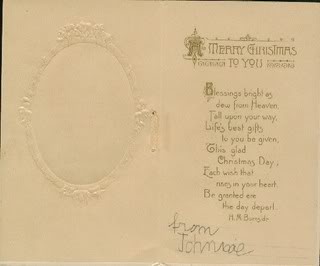 A MERRY CHRISTMAS
TO YOU
Blessings bright as
dew from Heaven,
Fall upon your way,
Life's best gifts
to you be given,
This glad
Christmas Day,
Each wish that
rises in your heart
Be granted ere
the day depart.
from
Johnnie